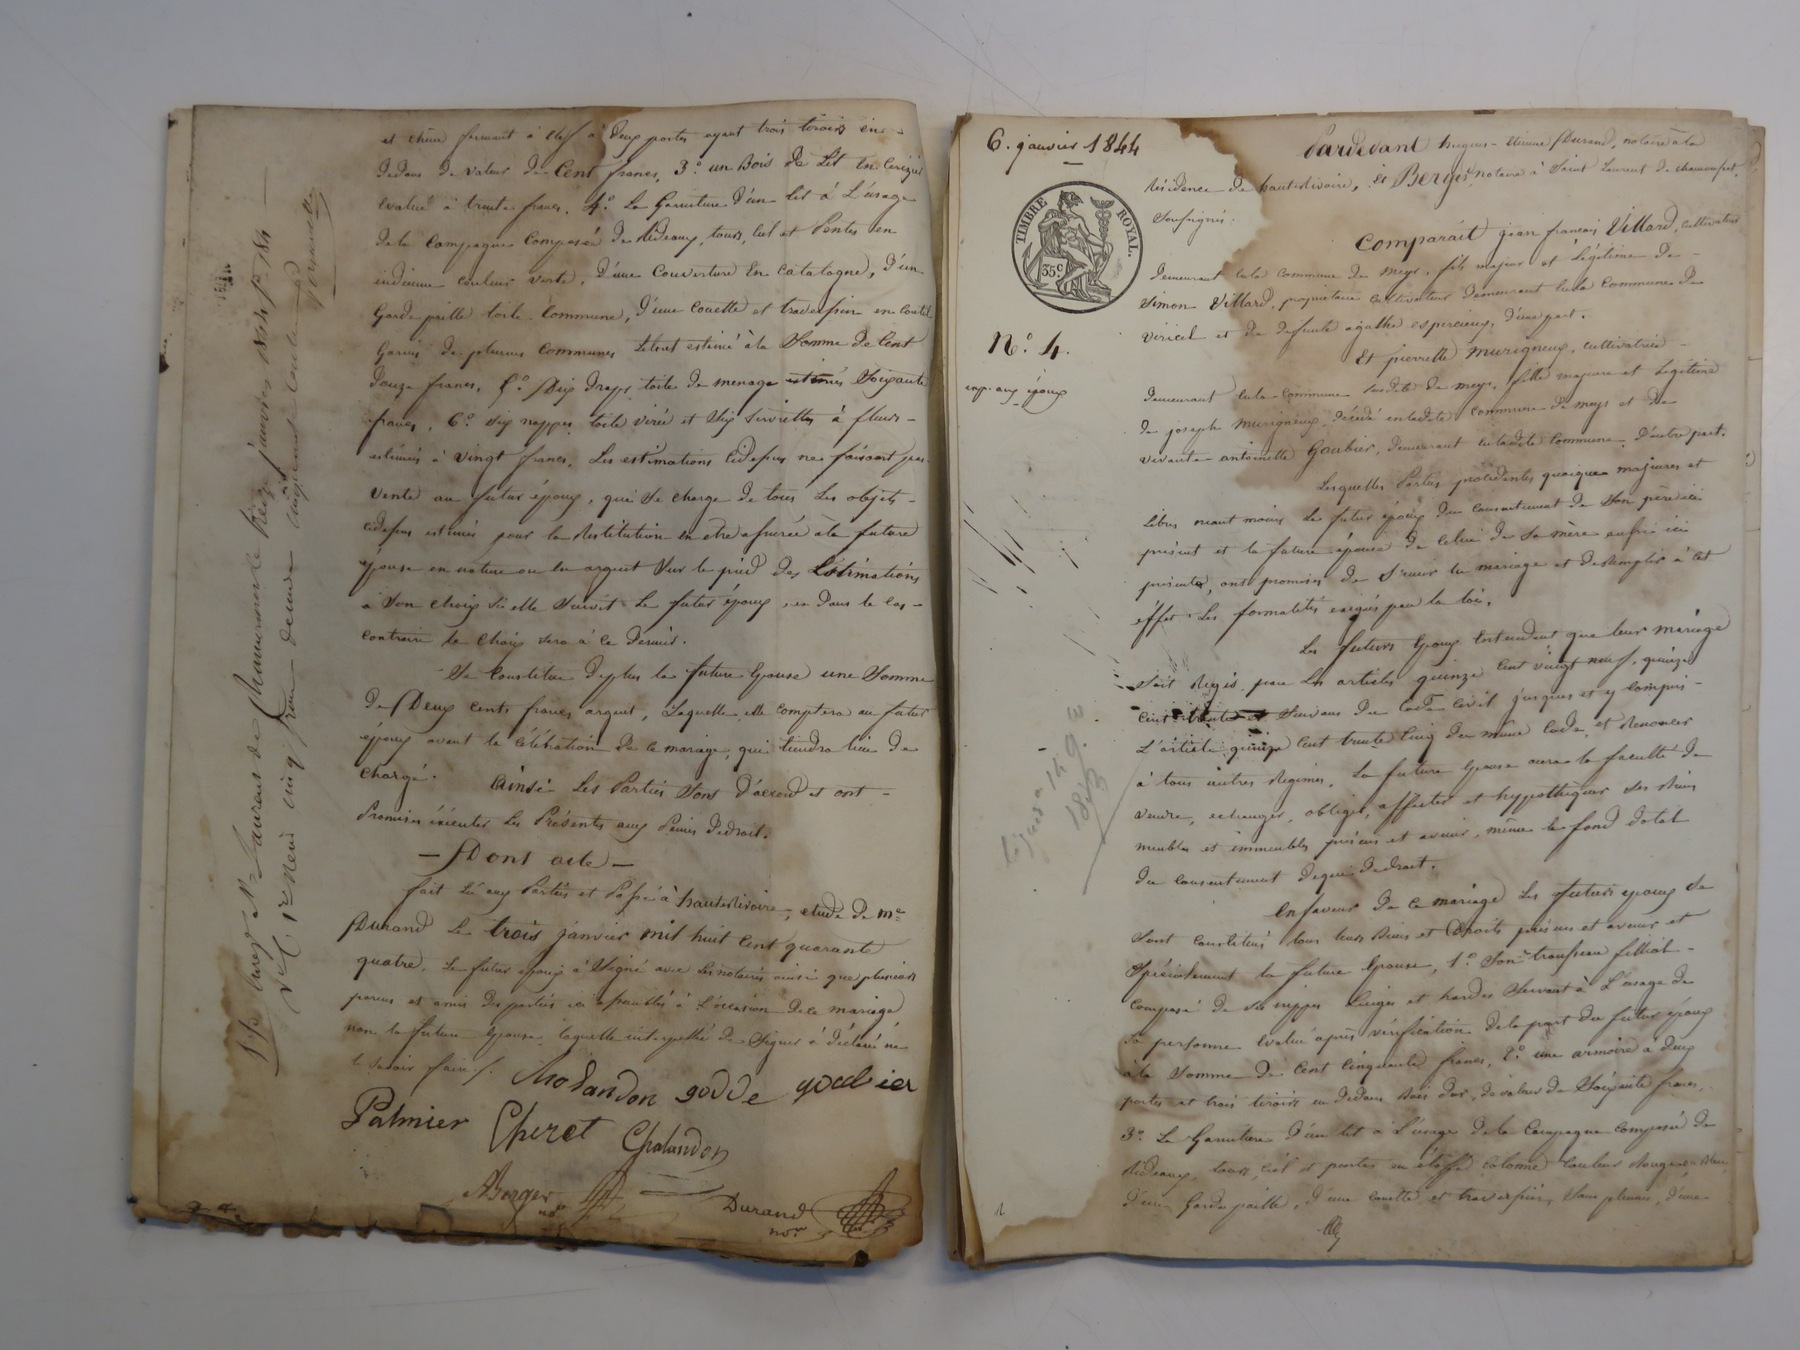 et chêne fermant à clef à deux portes ayant trois tiroirs en-
dedans de valeur de Cent francs, 3.° un Bois de Lit en Cerizier
Evalué à trente francs. 4.° La Garniture d'un lit à L'usage
de la Campagne Composée de Rideaux, tours, Ciel et Pentes en
indienne couleur verte, d'une Couverture En Catalogne, d'un
Garde paille toile Commune, d'une Couette et traversin en Coutil
Garnis de plumes Communes Le tout estimé à la Somme de Cent
Douze francs, 5.° Dix Draps toile de menage estimés Soixante
francs, 6.° six nappes toile et Six Serviettes à fleurs-
estimés à vingt francs. Les estimations Cidessus ne faisant pas
Vente au futur époux, qui Se charge de tous Les objets-
cidessus estimés pour la Restitution en etre assurée à la future
épouse en nature ou en argent Sur le pied des Estimations
à Son Choix Si elle Survit Le futur époux et Dans le Cas-
Contraire le Choix Sera à Ce Dernier.
Se Constitue De plus la future Epouse une Somme
De Deux Cents francs argent, Laquelle elle Comptera au futur
époux avant la Célébration De Ce mariage, qui tiendra lieu de
Charge. Ainsi Les Parties Sont D'accord et ont-
Promis éxécuter Les Présentes aux Peines De droit.
— Dont acte —
fait Lû aux Parties et Passé à hauterivoire, etude de me
Durand Le trois janvier mil huit Cent quarante
quatre, Le futur époux à Signé avec Les notaires ainsi que plusieurs
parens et amis Des parties ici assemblés à L'occasion De Ce mariage
non la future Epouse laquelle interpellée De Signer à déclaré ne
le Savoir faire.
godde goubier
Palmier Chalandon
ABerger nore Durand
nore
St Laurent de Chamousset le
6. janvier 1844
Pardevant hugues-etienne Durand, notaire à la
Résidence de hauterivoire, et Berger, notaire à Saint Laurent de chamousset,
Soussignés.
TIMBRE ROYAL.
35c
Comparait jean francois Villard, Cultivateur
Demeurant en la Commune De meys, fils majeur et Légitime De-
Simon Villard, propriétaire Cultivateur Demeurant en la Commune De
Viricel et De Defunte agathe D'une part.
N.° 4.
exp. aux époux
Et pierrette murigneux, Cultivatrice-
Demeurant en la Commune Susdite De meys, fille majeure et Légitime
De joseph murigneux, Décédé en ladite Commune De meys et De
vivante antoinette Goubier, Demeurant en ladite Commune, D'autre part.
Lesquelles Parties procédantes quoique majeures et
Libres neant moins Le futur époux Du Consentement De Son père ici
présent et la future épouse De Celui De Sa mère aussi ici
présente, ont promis De S'unir En mariage et De Remplir à Cet
effet Les formalités exigées par la loi.
Les futurs Epoux Entendent que leur mariage
Soit Régis par Les articles quinze Cent vingt neuf, quinze
Cent trente et Suivans Du Code Civil jusques et y Compris-
L'article quinze Cent trente Cinq Du même Code, et Renoncer
à tous autres Régimes. La future Epouse aura la faculté De
Vendre, echanger, obliger, affecter et hypothéquer Ses Biens
meubles et immeubles présens et avenir, même le fond Dotal
Du Consentement De qui De Droit.
En faveur De Ce mariage Les futurs époux Se
Sont Constitués tous leurs Biens et Droits présens et avenir et
Spécialement la future Epouse, 1.° Son trousseau filliat-
Composé de Ses nippes Linges et hardes Servant à L'usage De
Sa personne Evalué après vérification De la part Du futur époux
à la Somme De Cent Cinquante francs, 2.° une armoire à Deux
portes et trois tiroirs en Dedans Bois Dur, De valeur De Soixante francs,
3.° La Garniture D'un lit à L'usage De la Campagne Composée De
Rideaux, tours, Ciel et pentes en étoffe Cotonne Couleur Rouge et Bleu,
D'un Garde paille, D'une Couette et traversin, Sans plumes, D'une